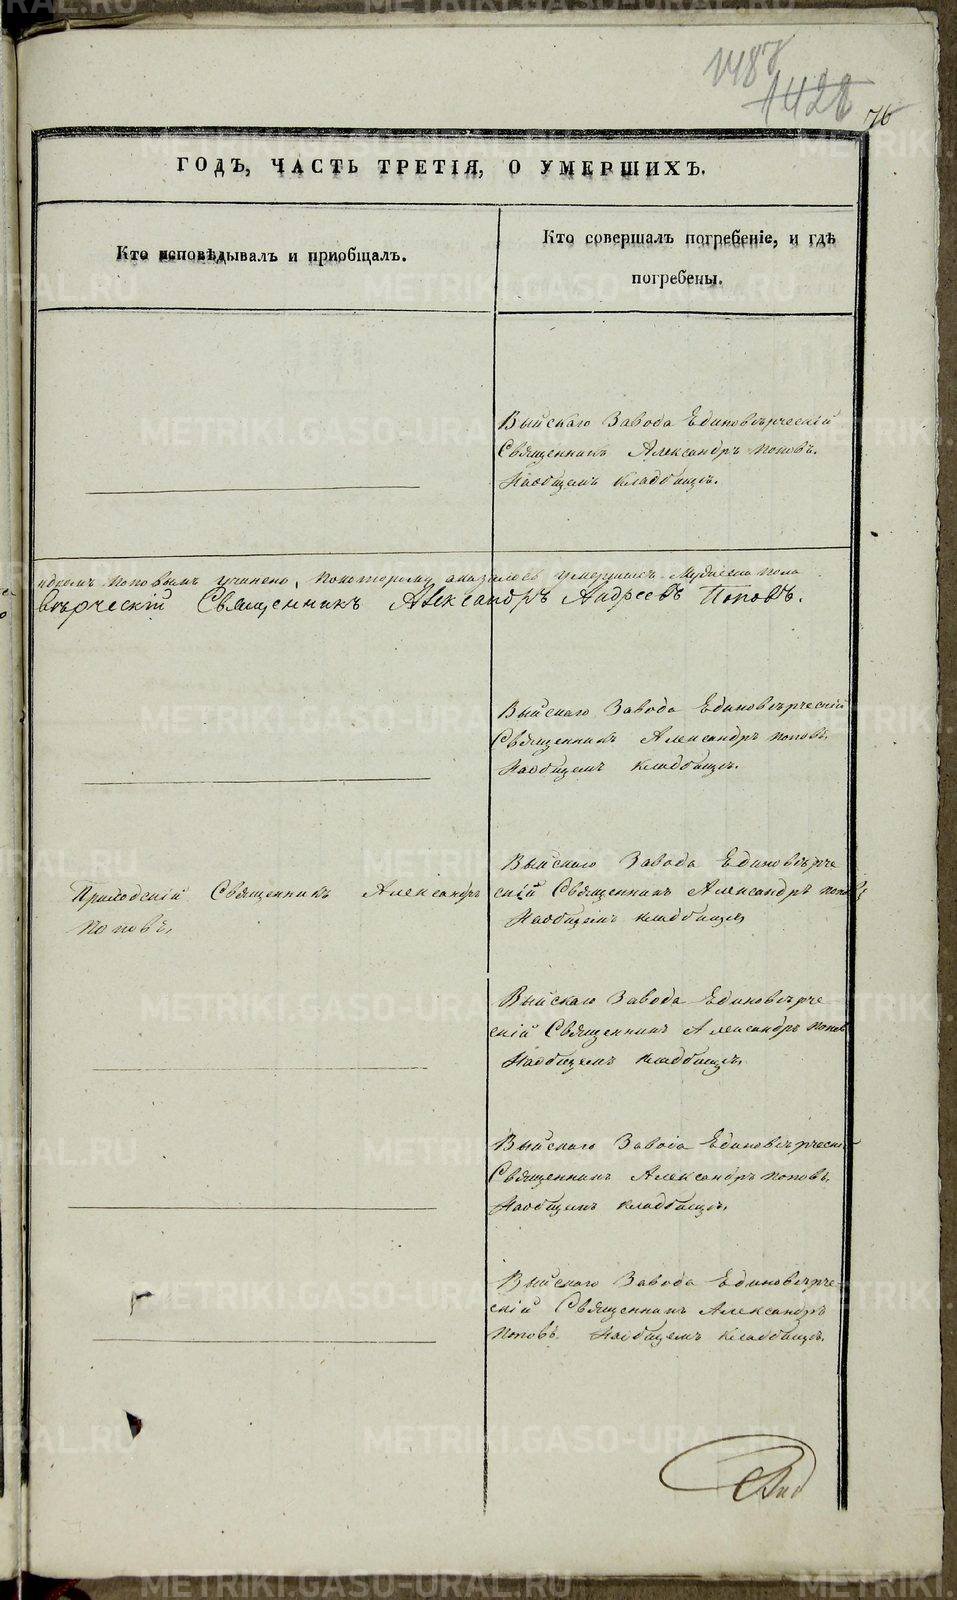 1487
1428
76
ГОДЪ, ЧАСТЬ ТРЕТІЯ, О УМЕРШИХЪ.
Кто исповѣдывалъ и приобщалъ.
Кто совершалъ погребеніе, и гдѣ
погребены.
Выйскаго Завода Единовѣрческій
Священникъ Александръ Поповъ.
На общемъ кладбищѣ.
Поповымъ учинено, по которому оказалось умершихъ
вѣрческій Священникъ Александръ Андреевъ Поповъ.
Выйскаго Завода Единовѣрческій
Священникъ Александръ Поповъ,
На общемъ кладбищѣ.
Приходскій Священникъ Александръ
Поповъ,
Выйскаго Завода Единовѣрче
скій Священникъ Александръ Поповъ
На общемъ кладбищѣ
Выйскаго Завода Единовѣрче
скій Священникъ Александръ Попов
На общемъ кладбищѣ,
Выйскаго Завода Единовѣрческій
Священникъ Александръ Поповъ,
На общемъ кладбищѣ,
Выйскаго Завода Единовѣрче
скій Священникъ Александръ
Поповъ На общемъ кладбищѣ,
METRIKI.GASO-URAL.RU